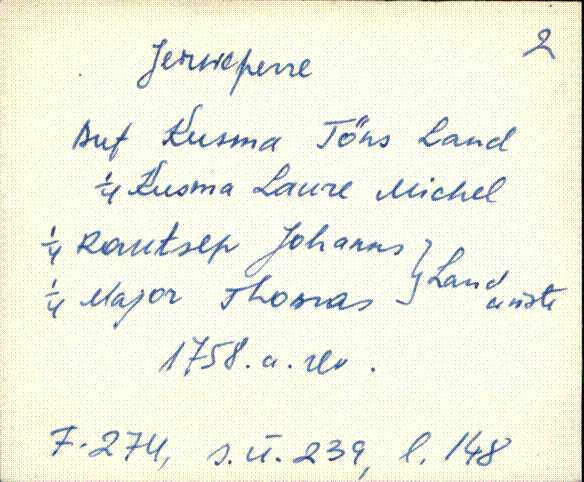 2
Jerwepere
Auf Kusma Töns Land
1/4 Kusma Laure Michel
1/4 Rautsep Johanns } Land
1/4 Major Thomas
1758. a. rev.
F. 274, s.ü. 239, l. 148